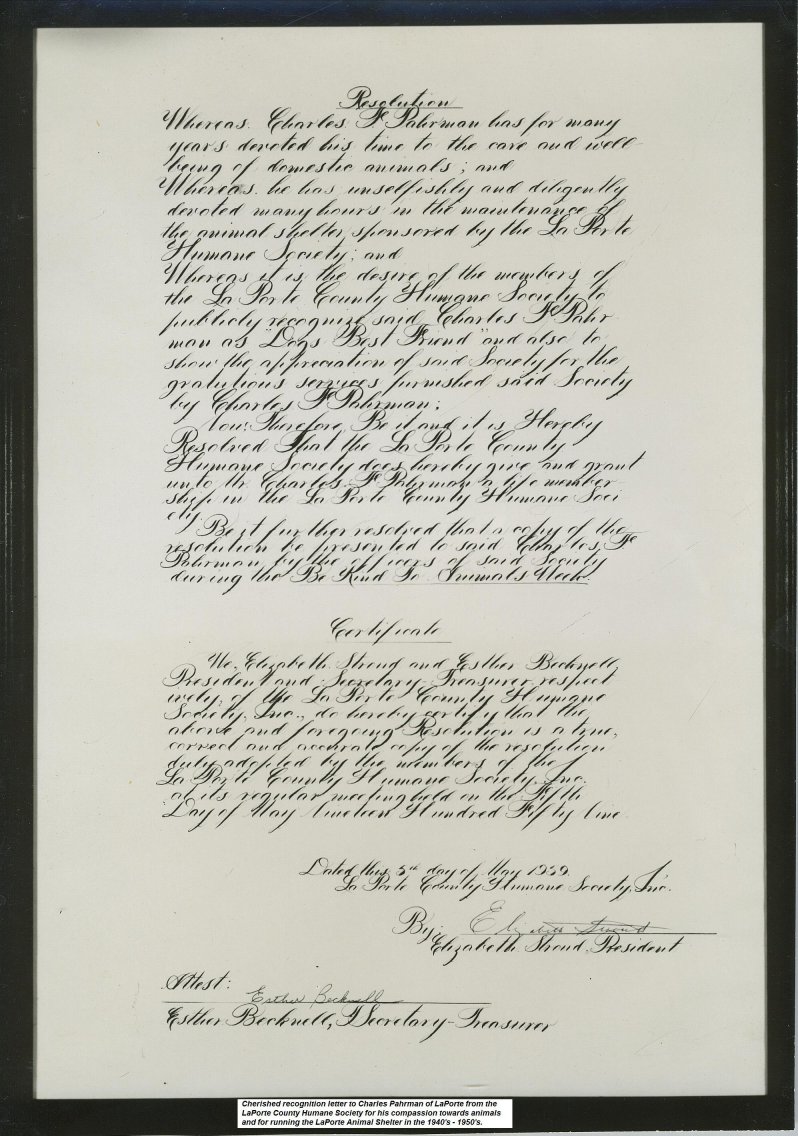 Resolution
Whereas. Charles F. Pahrman has for many
years devoted his time to the care and well-
being of domestic animals; and
Whereas. he has unselfishly and diligently
devoted many hours in the maintenance of
the animal shelter, sponsored by the La Porte
Humane Society; and
Whereas it is the desire of the members of
the La Porte County Humane Society to
publicly recognize said Charles F. Pahr-
man as "Dogs Best Friend" and also to
show the appreciation of said Society for the
gratutious services furnished said Society
by Charles F. Pahrman;
Now, Therefore, Be it and it is Hereby
Resolved That the La Porte County
Humane Society does hereby give and grant
unto Mr. Charles F. Pahrman a life member-
ship in the La Porte County Humane Soci-
ety.
Be it further resolved that a copy of the
resolution be presented to said Charles F.
Pahrman by the officers of said Society
during the Be Kind To Animals Week.
Certificate
We, Elizabeth Stroud and Esther Becknell,
President and Secretary-Treasurer, respect-
ively, of the La Porte County Humane
Society, Inc., do hereby certify that the
above and foregoing Resolution is a true,
correct and accurate copy of the resolution
duly adopted by the members of the
La Porte County Humane Society, Inc.
at its regular meeting held on the Fifth
Day of May Nineteen Hundred Fifty Nine.
Dated this 5th day of May 1959.
La Porte County Humane Society, Inc.
By: Elizabeth Stroud
Elizabeth Stroud, President
Attest:
Esther Becknell
Esther Becknell, Secretary-Treasurer
Cherished recognition letter to Charles Pahrman of LaPorte from the
LaPorte County Humane Society for his compassion towards animals
and for running the LaPorte Animal Shelter in the 1940's - 1950's.